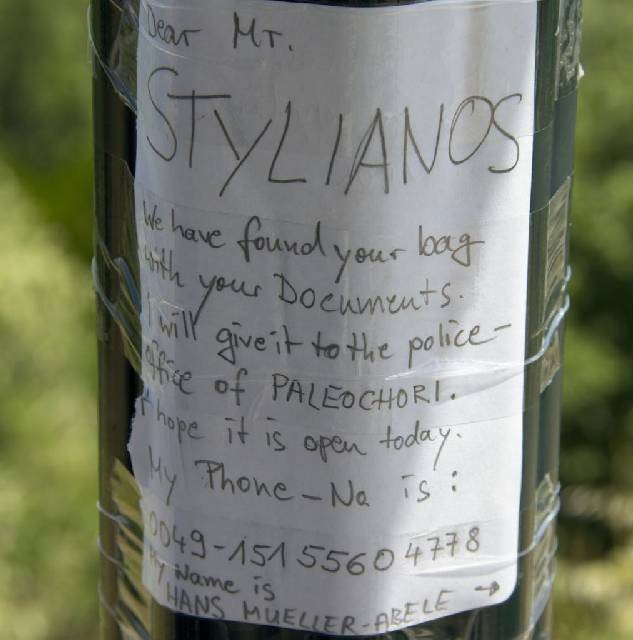 Dear Mr.
STYLIANOS
We have found your bag
with your Documents.
I will give it to the police-
office of PALEOCHORI.
I hope it is open today.
My Phone-No is:
0049-151 5560 4778
My Name is
HANS MUELLER-ABELE →